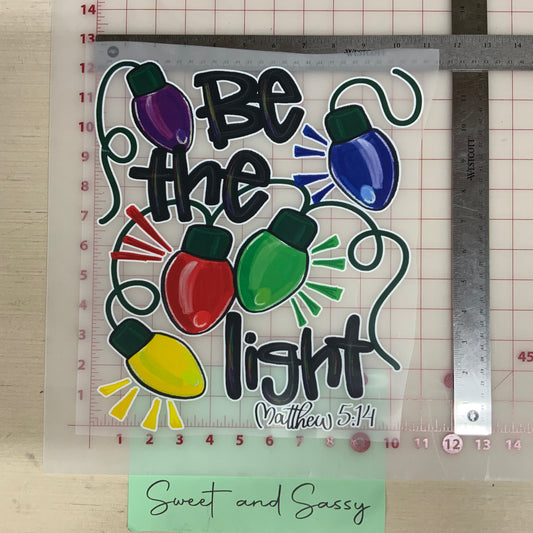 14
13
12
11
10
9
8
7
6
5
4
3
2
1
WESTCOTT
WESTCOTT
Be
the
light
Matthew 5:14
45
1 2 3 4 5 6 7 8 9 10 11 12 13 14
Sweet and Sassy